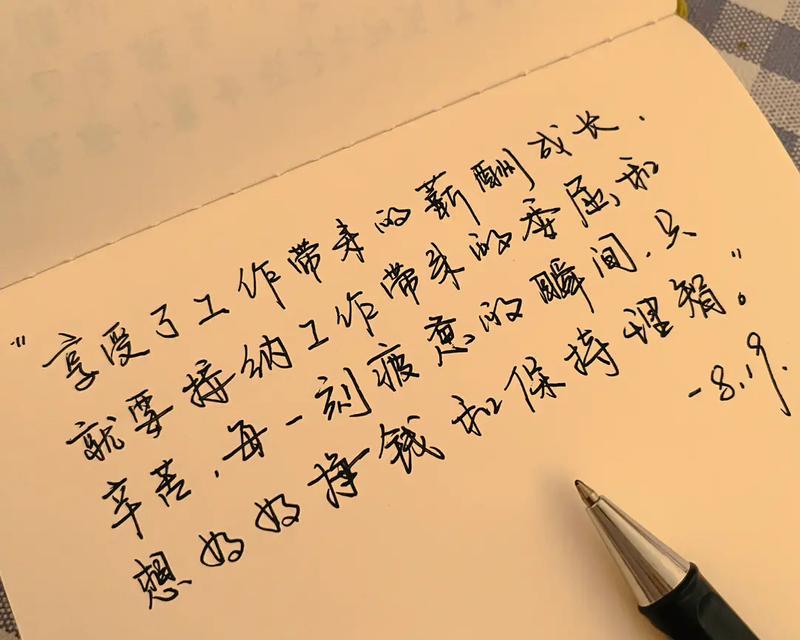 "享受了工作带来的薪酬成长.
就要接纳工作带来的委屈和
辛苦,每一刻疲惫的瞬间.只
想好好挣钱和保持理智。"
-8.19.